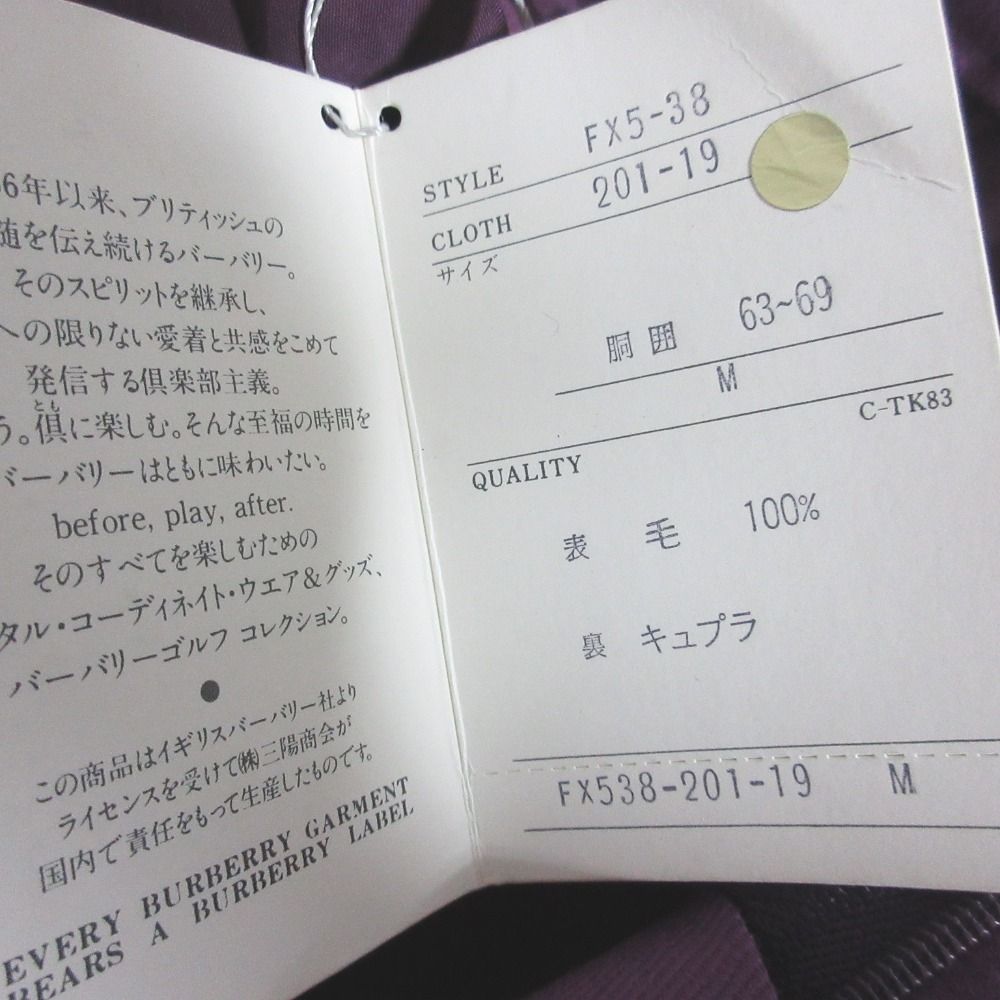 6年以来、ブリティッシュの
随を伝え続けるバーバリー。
そのスピリットを継承し、
への限りない愛着と共感をこめて
発信する倶楽部主義。
う。倶に楽しむ。そんな至福の時間を
とも
バーバリーはともに味わいたい。
before, play, after.
そのすべてを楽しむための
タル・コーディネイト・ウエア&グッズ、
バーバリーゴルフ コレクション。
●
この商品はイギリスバーバリー社より
ライセンスを受けて㈱三陽商会が
国内で責任をもって生産したものです。
EVERY BURBERRY GARMENT
BEARS A BURBERRY LABEL
STYLE FX5-38
CLOTH 201-19
サイズ
胴囲 63~69
M
C-TK83
QUALITY
表 毛 100%
裏 キュプラ
FX538-201-19 M